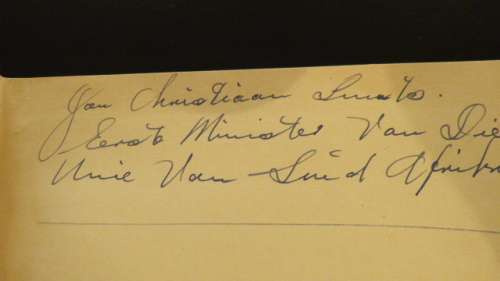 Jan Christiaan Smuts.
Eerste Minister Van Die
Unie Van Suid Afrik